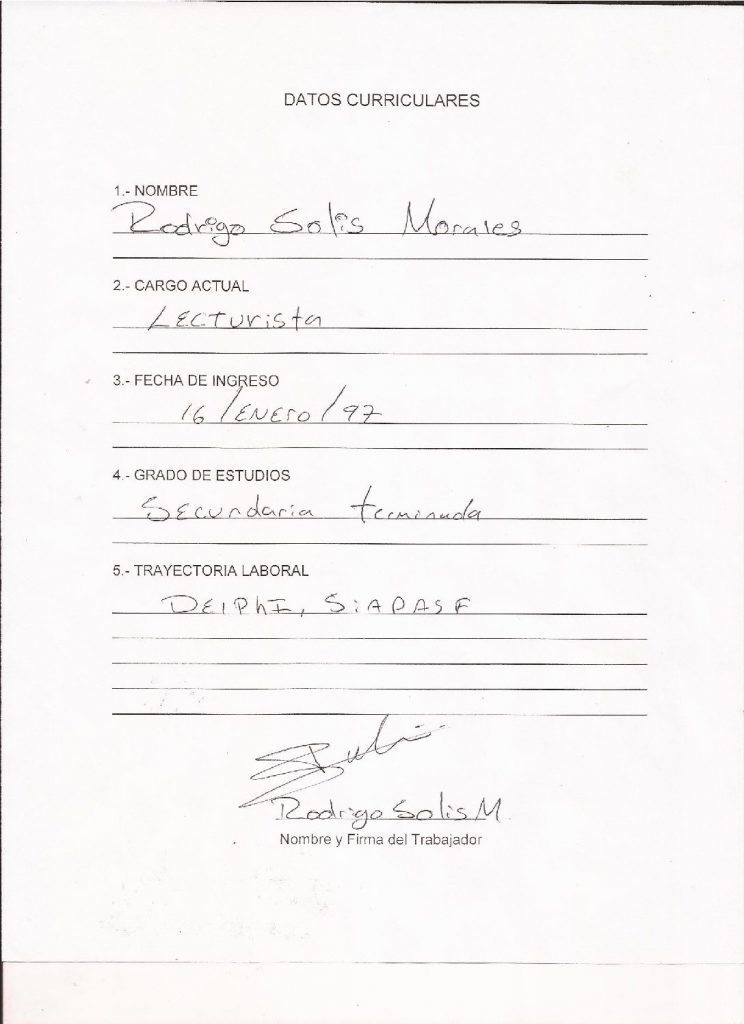 DATOS CURRICULARES
1.- NOMBRE
Rodrigo Solis Morales
2.- CARGO ACTUAL
Lecturista
3.- FECHA DE INGRESO
16/ENERO/97
4.- GRADO DE ESTUDIOS
Secundaria terminada
5.- TRAYECTORIA LABORAL
DElPhI, SiAPASF
Rodrigo Solis M
Nombre y Firma del Trabajador